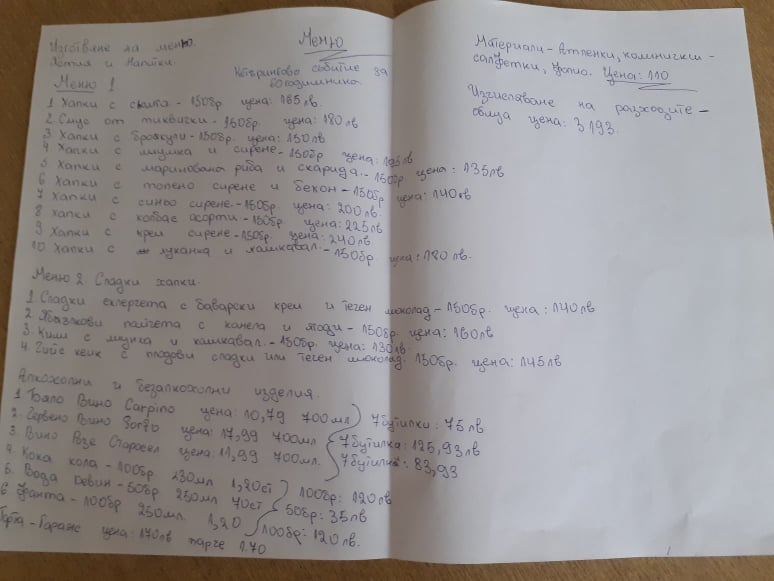 Изготвяне на меню.
Ястия и напитки.
Меню
Кетърингово събитие 89
годишнина
Меню 1
1 Хапки с сьомга - 150бр цена: 165 лв.
2. Снус от тиквички - 150бр. цена: 180 лв
3 Хапки с броколи - 150бр. цена: 150 лв
4 Хапки с шунка и сирене - 150бр цена: 195 лв
5 Хапки с маринована риба и скарида. - 150бр цена: 135лв
6 Хапки с топено сирене и бекон - 150бр цена: 140лв
7 Хапки с синьо сирене. - 150бр. цена: 200 лв.
8 хапки с колбас асорти. - 150бр. цена: 225лв
9 Хапки с крем сирене - 150бр. цена: 240лв
10 Хапки с луканка и кашкавал. - 150бр. цена: 180 лв.
Меню 2 Сладки хапки.
1. Сладки еклергета с баварски крем и течен шоколад - 150бр. цена: 140лв
2 Ябълкови пайгета с канела и ягоди - 150бр. цена: 160лв
3 Киш с шунка и кашкавал. - 150бр. цена: 130лв.
4. Гийс кейк с плодови сладки или течен шоколад. 150бр. цена: 145лв
Алкохолни и безалкохолни изделия.
1 Бяло Вино Carpino цена: 10,79 700мл 7 бутилки: 75 лв
2. Червено Вино цена: 17,99 700мл 7 бутилка: 125,93лв
3. Вино Розе Старосел цена: 11,99 700мл. 7 бутилка: 83,93
4. Кока кола - 100бр. 250мл 1,20ст 100бр: 120лв
5. Вода Девин - 50бр 250мл 70ст 50бр: 35лв
6 Фанта - 100бр 250мл. 1,20 100бр: 120лв.
Торта - Гараж цена: 170лв парче 1.70
Материали - салфетки, Цена: 110
Изчисляване на разходите -
обща цена: 3193.